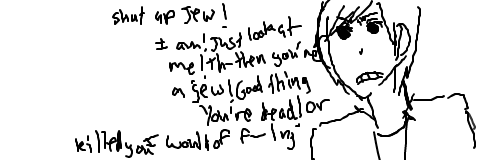 shut up Jew!
I am! Just look at
me! Th-then you're
a Jew! Good thing
You're dead! or
killed you would of